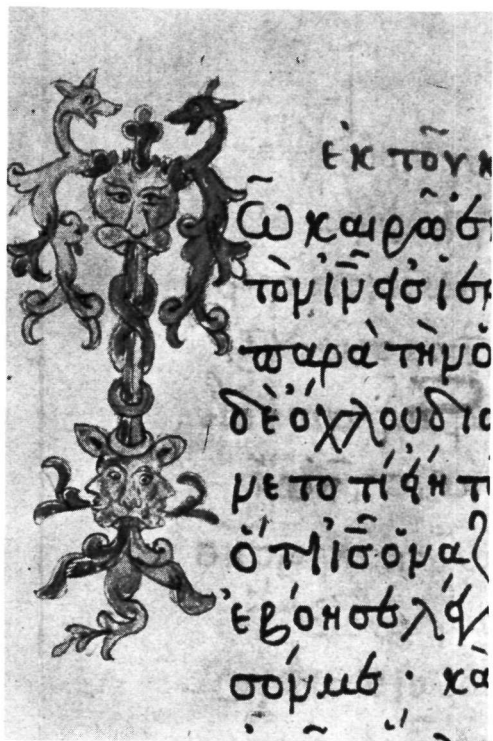 ἐκ τοῦ κ
ῶ καιρῶ ἐ
τὸν ἰῦν εἰς
παρὰ τὴν ὁ
δὲ ὄχλου δια
νετο τί εἴη τ
ὅτι ἰς ὁ ναζ
ἐβόησε λέγ
σόν με · κὰ